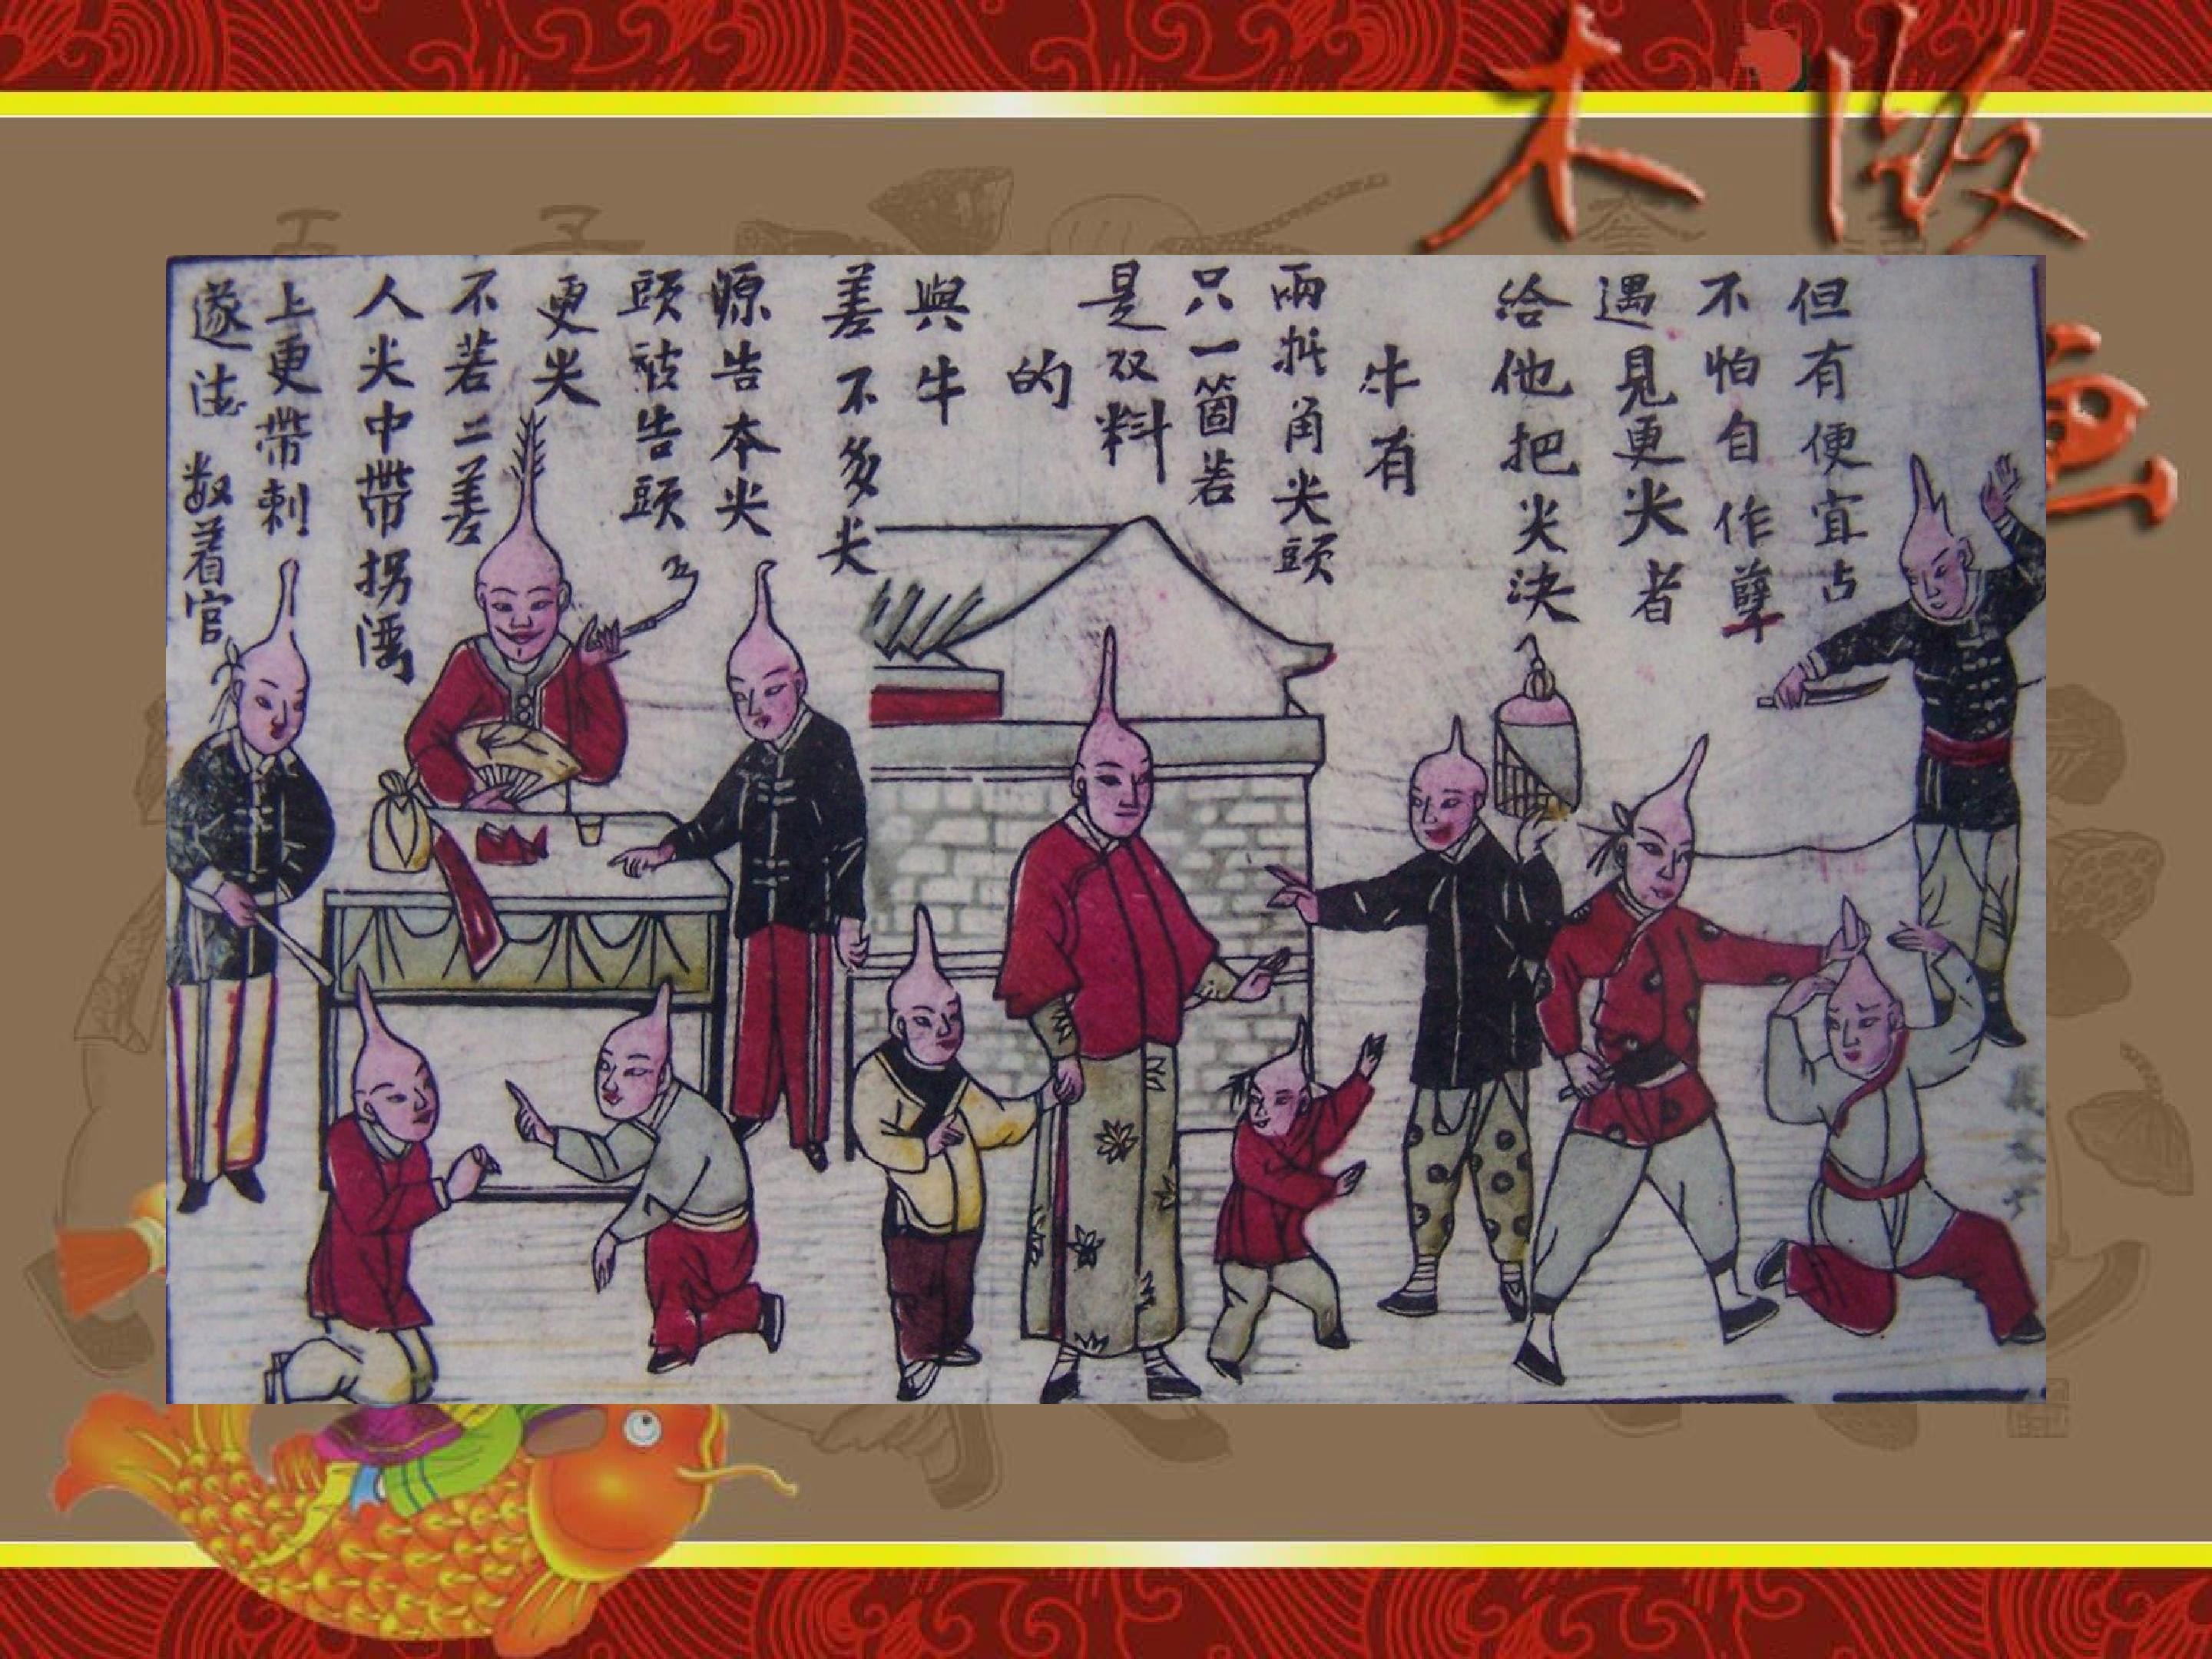 木版
但有便宜占
不怕自作孽
遇見更尖者
給他把尖决
牛有
兩抵角尖頭
只一箇若
是双料
的
與牛
差不多尖
源告本尖
頭被告頭
更尖
不若二差
人尖中帶拐灣
上更帶刺
遂法 数着官